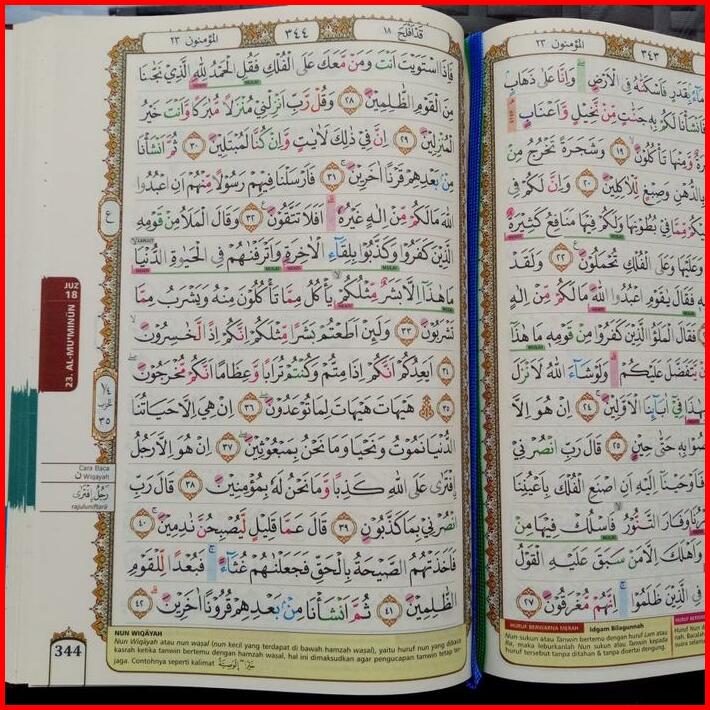 المؤمنون ٢٣
٣٤٤
قد افلح ١٨
فَاِذَا اسْتَوَيْتَ اَنْتَ وَمَنْ مَّعَكَ عَلَى الْفُلْكِ فَقُلِ الْحَمْدُ لِلّٰهِ الَّذِيْ نَجّٰىنَا
مِنَ الْقَوْمِ الظّٰلِمِيْنَ ٢٨ وَقُلْ رَّبِّ اَنْزِلْنِيْ مُنْزَلًا مُّبٰرَكًا وَّاَنْتَ خَيْرُ
الْمُنْزِلِيْنَ ٢٩ اِنَّ فِيْ ذٰلِكَ لَاٰيٰتٍ وَّاِنْ كُنَّا لَمُبْتَلِيْنَ ٣٠ ثُمَّ اَنْشَأْنَا
مِنْۢ بَعْدِهِمْ قَرْنًا اٰخَرِيْنَ ٣١ فَاَرْسَلْنَا فِيْهِمْ رَسُوْلًا مِّنْهُمْ اَنِ اعْبُدُوا
اللّٰهَ مَا لَكُمْ مِّنْ اِلٰهٍ غَيْرُهٗ اَفَلَا تَتَّقُوْنَ ٣٢ وَقَالَ الْمَلَاُ مِنْ قَوْمِهِ
الَّذِيْنَ كَفَرُوْا وَكَذَّبُوْا بِلِقَاۤءِ الْاٰخِرَةِ وَاَتْرَفْنٰهُمْ فِى الْحَيٰوةِ الدُّنْيَا
مَا هٰذَآ اِلَّا بَشَرٌ مِّثْلُكُمْ يَأْكُلُ مِمَّا تَأْكُلُوْنَ مِنْهُ وَيَشْرَبُ مِمَّا
تَشْرَبُوْنَ ٣٣ وَلَىِٕنْ اَطَعْتُمْ بَشَرًا مِّثْلَكُمْ اِنَّكُمْ اِذًا لَّخٰسِرُوْنَ
٣٤ اَيَعِدُكُمْ اَنَّكُمْ اِذَا مِتُّمْ وَكُنْتُمْ تُرَابًا وَّعِظَامًا اَنَّكُمْ مُّخْرَجُوْنَ
٣٥ هَيْهَاتَ هَيْهَاتَ لِمَا تُوْعَدُوْنَ ٣٦ اِنْ هِيَ اِلَّا حَيَاتُنَا
الدُّنْيَا نَمُوْتُ وَنَحْيَا وَمَا نَحْنُ بِمَبْعُوْثِيْنَ ٣٧ اِنْ هُوَ اِلَّا رَجُلُ
ِۨافْتَرٰى عَلَى اللّٰهِ كَذِبًا وَّمَا نَحْنُ لَهٗ بِمُؤْمِنِيْنَ ٣٨ قَالَ رَبِّ
انْصُرْنِيْ بِمَا كَذَّبُوْنِ ٣٩ قَالَ عَمَّا قَلِيْلٍ لَّيُصْبِحُنَّ نٰدِمِيْنَ ٤٠
فَاَخَذَتْهُمُ الصَّيْحَةُ بِالْحَقِّ فَجَعَلْنٰهُمْ غُثَاۤءً فَبُعْدًا لِّلْقَوْمِ
الظّٰلِمِيْنَ ٤١ ثُمَّ اَنْشَأْنَا مِنْۢ بَعْدِهِمْ قُرُوْنًا اٰخَرِيْنَ ٤٢
JUZ
18
23. AL-MU'MINŪN
ع
١/٤
حزب
٣٥
Cara Baca
ن Wiqayah
رَجُلُ ِۨافْتَرٰى
rajuluniftarā
344
NUN WIQĀYAH
Nun Wiqāyah atau nun waṣal (nun kecil yang terdapat di bawah hamzah waṣal), yaitu huruf nun yang dibaca
kasrah ketika tanwin bertemu dengan hamzah waṣal, hal ini dimaksudkan agar pengucapan tanwin tetap ter-
jaga. Contohnya seperti kalimat
المؤمنون ٢٣
٣٤٣
بِقَدَرٍ فَاَسْكَنّٰهُ فِى الْاَرْضِ وَاِنَّا عَلٰى ذَهَابٍ
فَاَنْشَأْنَا لَكُمْ بِهٖ جَنّٰتٍ مِّنْ نَّخِيْلٍ وَّاَعْنَابٍ
وَّمِنْهَا تَأْكُلُوْنَ ١٩ وَشَجَرَةً تَخْرُجُ مِنْ
بِالدُّهْنِ وَصِبْغٍ لِّلْاٰكِلِيْنَ ٢٠ وَاِنَّ لَكُمْ فِى
مِّمَّا فِيْ بُطُوْنِهَا وَلَكُمْ فِيْهَا مَنَافِعُ كَثِيْرَةٌ
وَعَلَيْهَا وَعَلَى الْفُلْكِ تُحْمَلُوْنَ ٢٢ وَلَقَدْ
فَقَالَ يٰقَوْمِ اعْبُدُوا اللّٰهَ مَا لَكُمْ مِّنْ اِلٰهٍ
فَقَالَ الْمَلَؤُا الَّذِيْنَ كَفَرُوْا مِنْ قَوْمِهٖ مَا هٰذَآ
اَنْ يَّتَفَضَّلَ عَلَيْكُمْ وَلَوْ شَاۤءَ اللّٰهُ لَاَنْزَلَ
بِهٰذَا فِيْٓ اٰبَاۤىِٕنَا الْاَوَّلِيْنَ ٢٤ اِنْ هُوَ اِلَّا
بِهٖ حَتّٰى حِيْنٍ ٢٥ قَالَ رَبِّ انْصُرْنِيْ
فَاَوْحَيْنَآ اِلَيْهِ اَنِ اصْنَعِ الْفُلْكَ بِاَعْيُنِنَا
وَفَارَ التَّنُّوْرُ فَاسْلُكْ فِيْهَا مِنْ
وَاَهْلَكَ اِلَّا مَنْ سَبَقَ عَلَيْهِ الْقَوْلُ
فِى الَّذِيْنَ ظَلَمُوْا اِنَّهُمْ مُّغْرَقُوْنَ ٢٧
HURUF BERWARNA MERAH
Idgam Bilagunnah
Nun sukun atau Tanwin bertemu dengan huruf Lam atau
Ra, maka leburkanlah Nun sukun atau Tanwin kepada
huruf tersebut tanpa ditahan & tanpa disertai dengung.